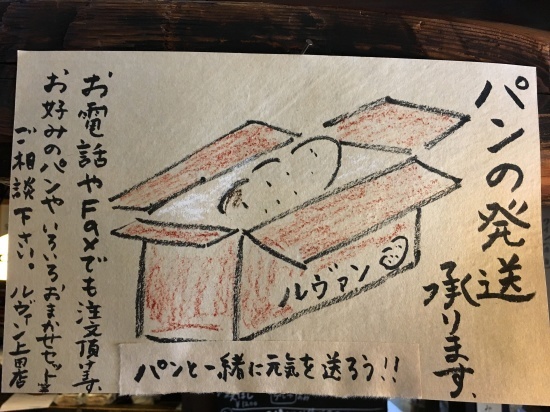 パンの発送
承ります。
お電話やFaxでも注文頂けます。
お好みのパンやいろいろおまかせセット等
ご相談下さい。ルヴァン上田店
ルヴァン
パンと一緒に元気を送ろう!!